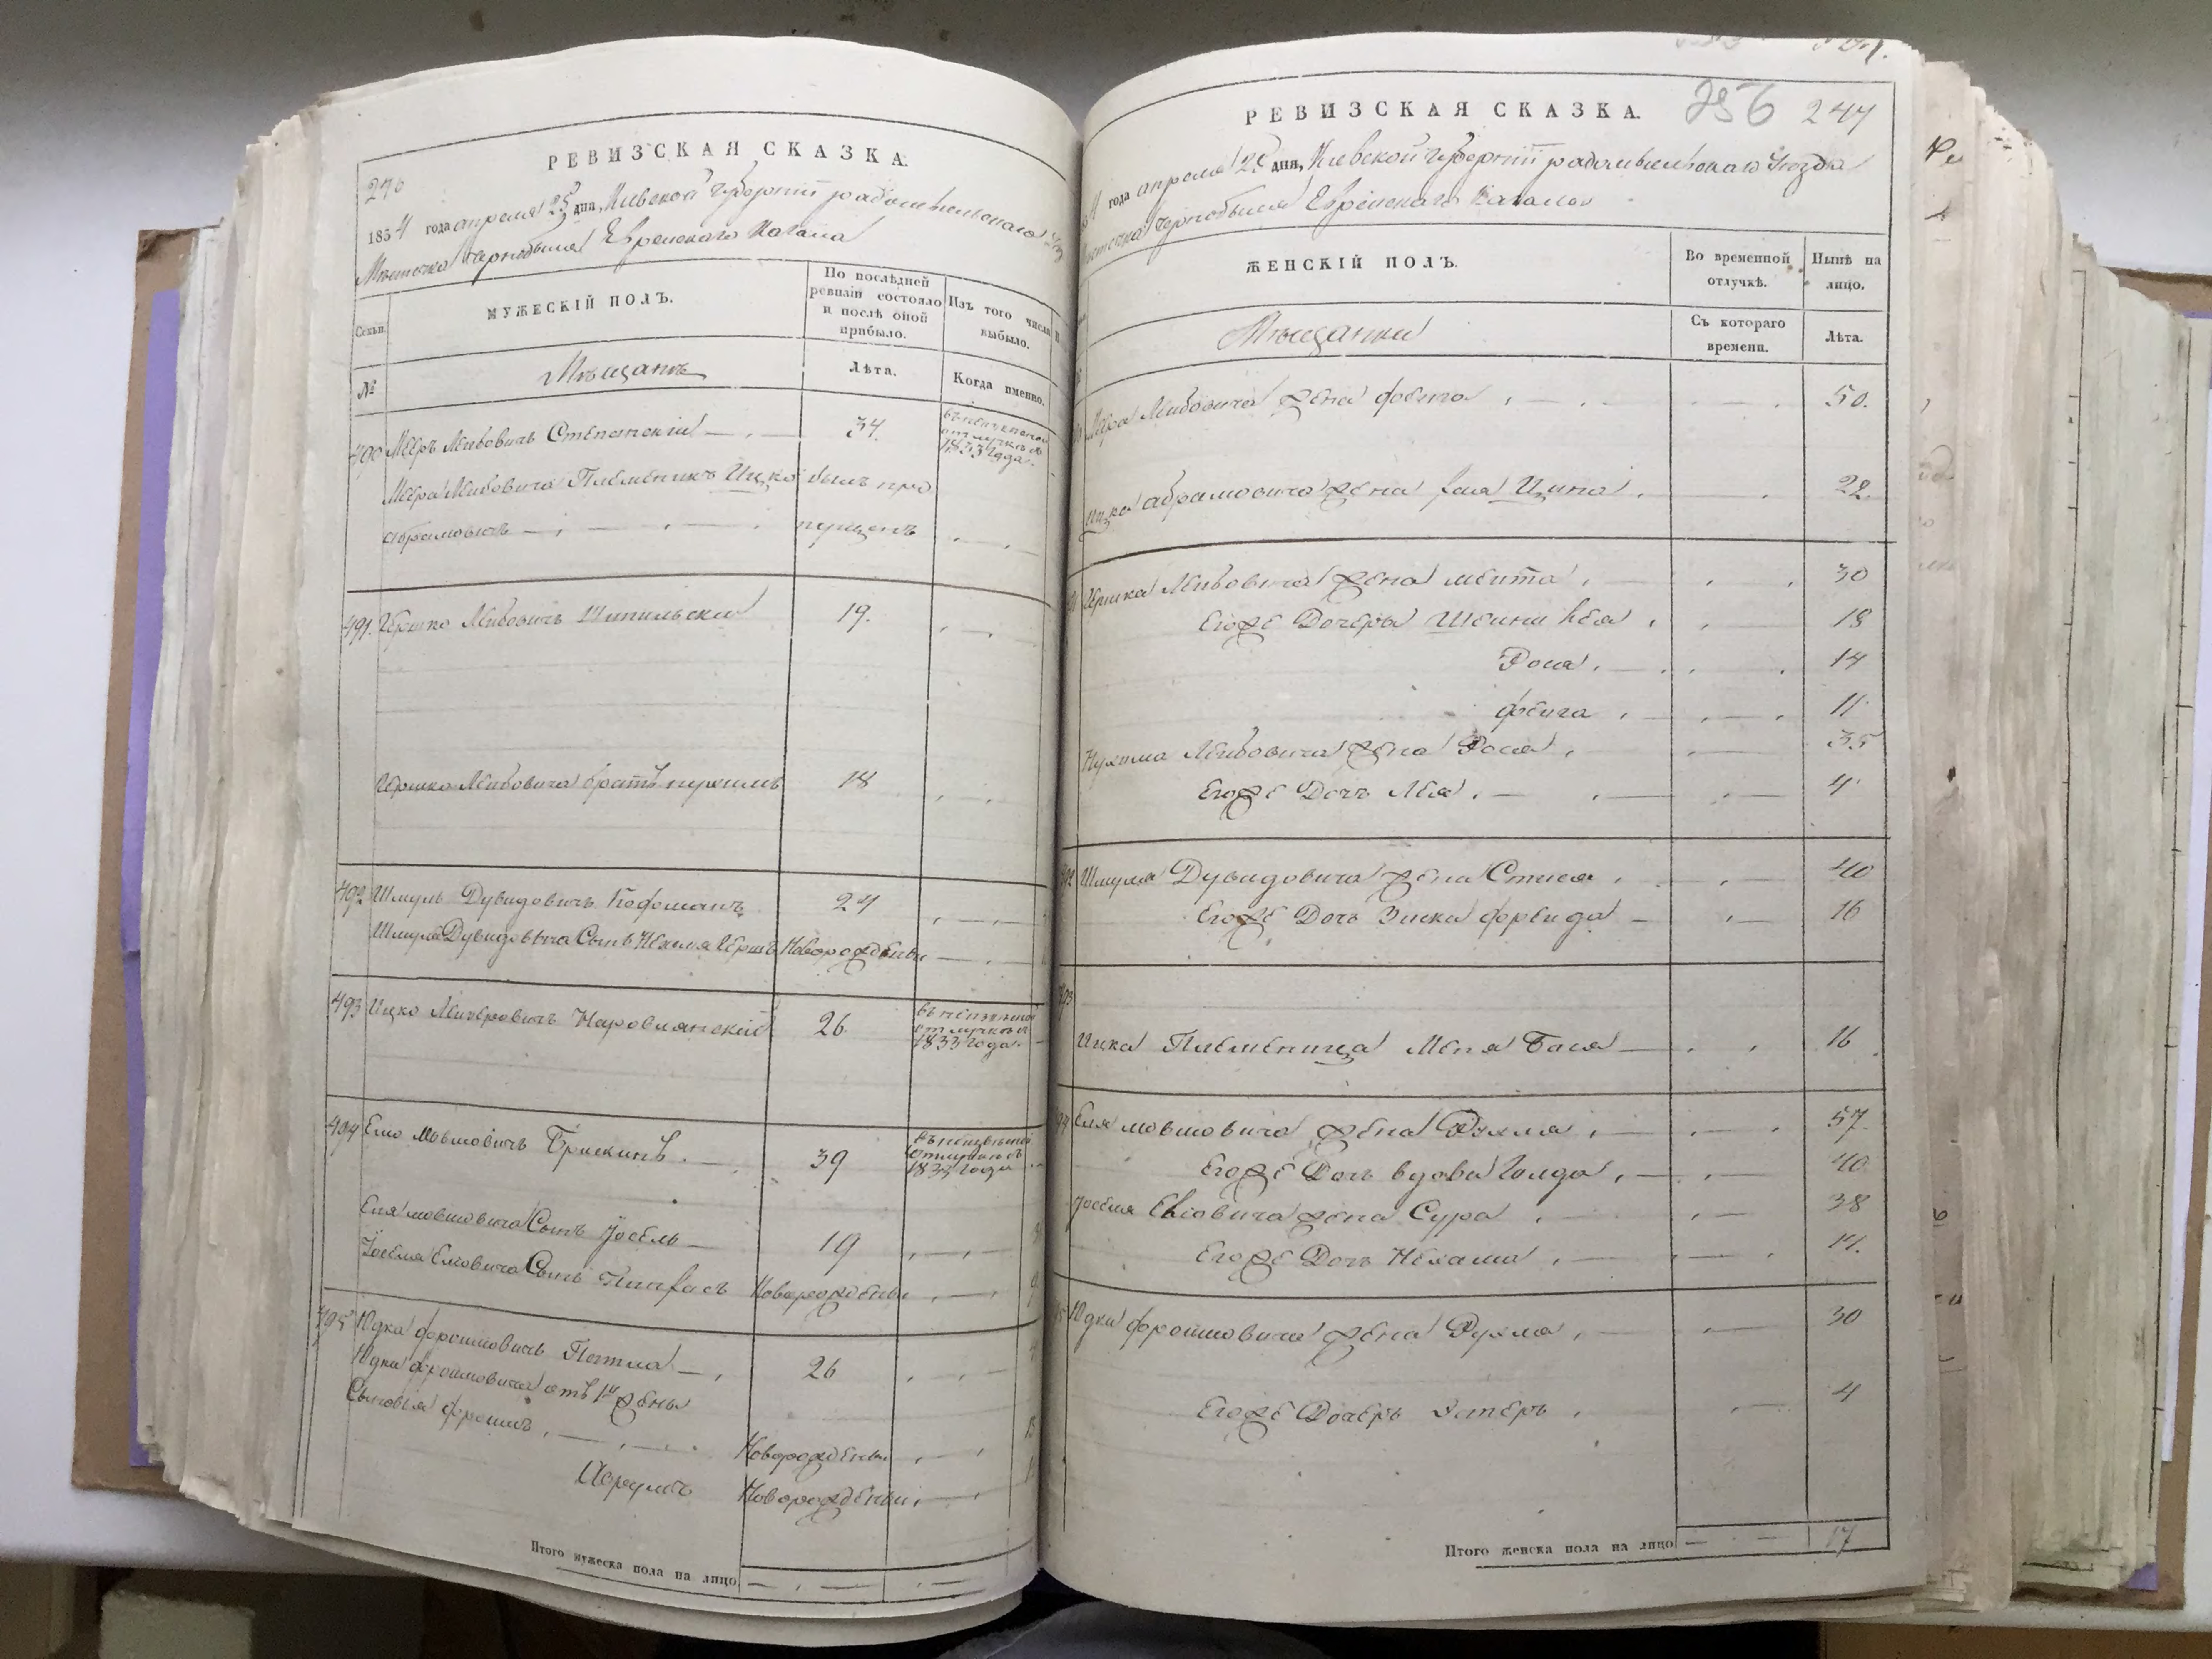 РЕВИЗСКАЯ СКАЗКА.
270
1834 года апреля 25 дня, Киевской Губернiи радомысльского
Местечка Чернобыля Евреискаго Кагала
Семьи.
МУЖЕСКIЙ ПОЛЪ.
По послѣдней ревизiи состояло и послѣ оной прибыло.
Изъ того числа выбыло.
№
Мѣщанъ
Лѣта.
Когда именно.
490 Меѣръ Леибовичъ Степанскiй 34.
отлучкѣ съ
1833 года.
Меера Леибовича Племеникъ Ицко былъ про
абрамовичъ пущенъ
491. Гершко Леибовичъ 19.
Гершка Леибовича братъ нухимъ 18
492 Шмуль Дувидовичъ Кофоманъ 24
Шмуля Дувидовича Сынъ Нехемя Гершъ Новорожденый
493 Ицко Меиеровичъ Наровлянскiй 26
отлучкѣ съ
1833 года.
494 Елю мовшовичъ Брискинъ. 39
1833 года
Еля мовшовича Сынъ Йосель 19
Йоселя Елювича Сынъ Пинхасъ Новорожденый
495 Юдка фроимовичъ Патла 26
Юдка фроимовича отъ 1й жены
Сыновья фроимъ Новорожденый
Новорожденый
Итого мужеска пола на лицо
РЕВИЗСКАЯ СКАЗКА.
256 247
года апреля 25 дня, Киевской Губернiи радомысльскаго Уезда
Местечка Чернобыля Евреискаго Кагала
ЖЕНСКIЙ ПОЛЪ.
Во временной отлучкѣ.
Нынѣ на лицо.
Мѣщанки
Съ котораго времени.
Лѣта.
Меера Леибовича жена фрейма 50.
Ицка абрамовича жена хая Ципа 22.
Гершка Леибовича жена меита 30
Егоже Дочери Шеини Лея 18
Рося 14
фейга 11
Нухима Леибовича жена Рося 35
Егоже Дочъ Лея 4
Шмуля Дувидовича жена Стися 40
Егоже Дочъ Зиска фреида 16
Ицка Племеница Меня Бася 16
Еля мовшовича жена Рухля 57.
Егоже Дочъ вдова Голда 40
Йоселя Елювича жена Сура 38
Егоже Дочъ Нехама 14.
Юдки фроимовича жена Рухля 30
Егоже Дочеръ Эстеръ 4
Итого женска пола на лицо 17